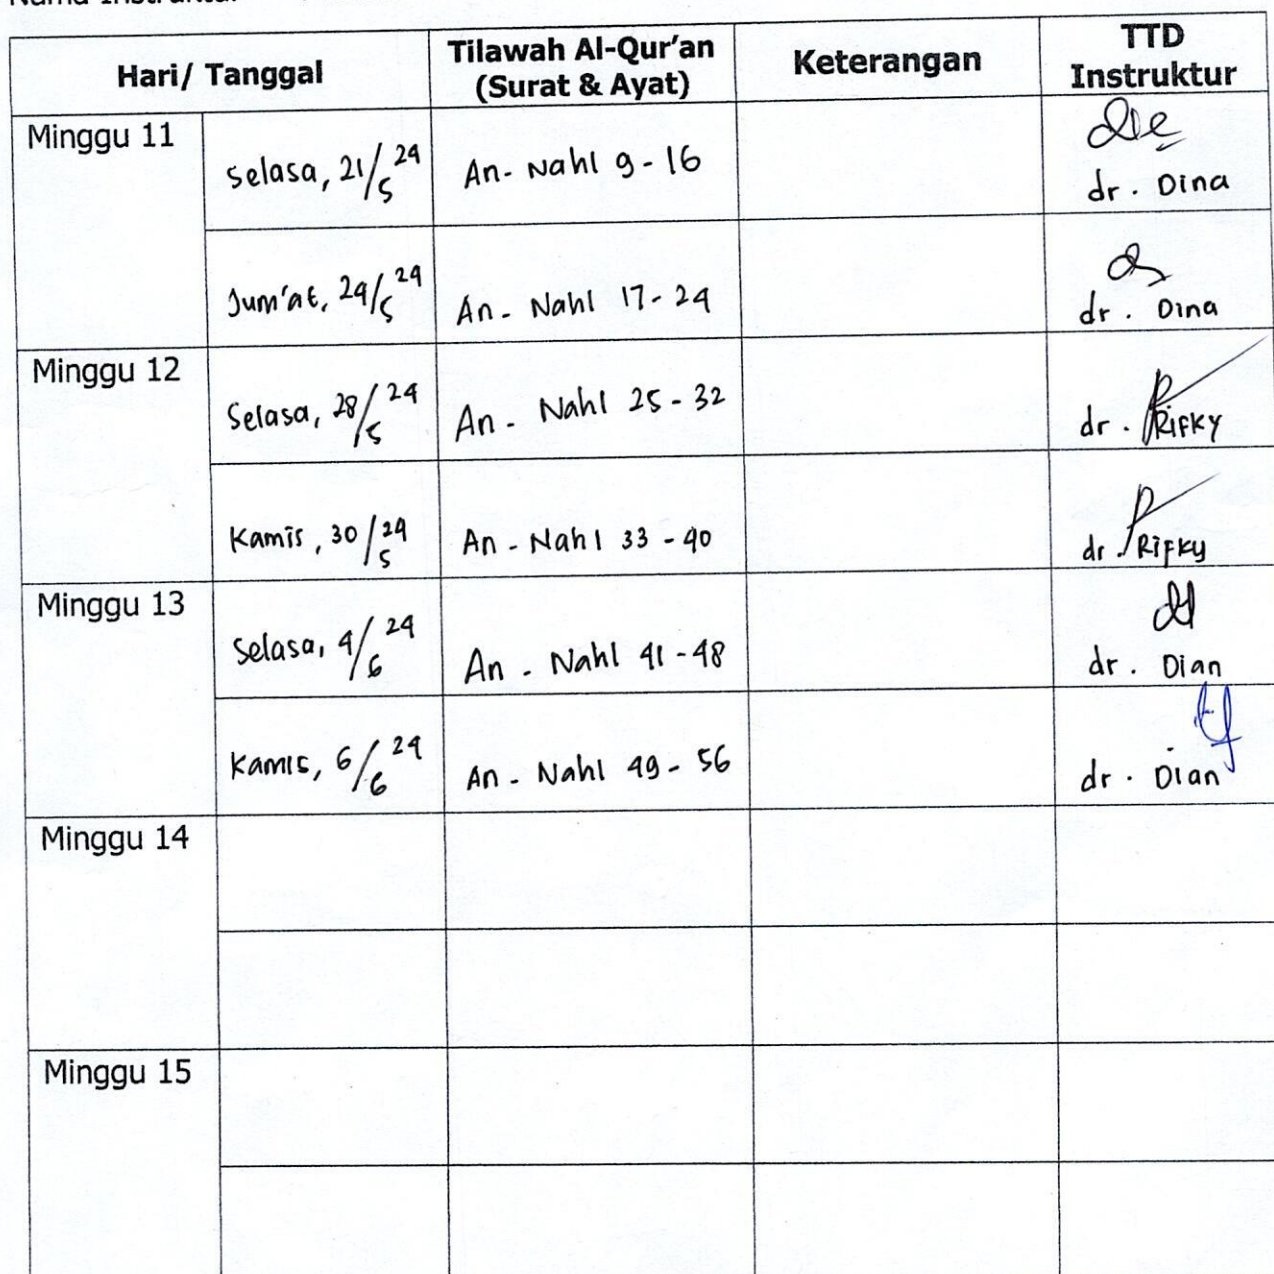 Hari/ Tanggal
Tilawah Al-Qur'an
(Surat & Ayat)
Keterangan
TTD
Instruktur
Minggu 11
Selasa, 21/5 24
An- Nahl 9 - 16
dr. Dina
Jum'at, 24/5 24
An - Nahl 17 - 24
dr. Dina
Minggu 12
Selasa, 28/5 24
An - Nahl 25 - 32
dr. Rifky
Kamis, 30/5 24
An - Nahl 33 - 40
dr. Rifky
Minggu 13
Selasa, 4/6 24
An - Nahl 41 - 48
dr. Dian
Kamis, 6/6 24
An - Nahl 49 - 56
dr. Dian
Minggu 14
Minggu 15